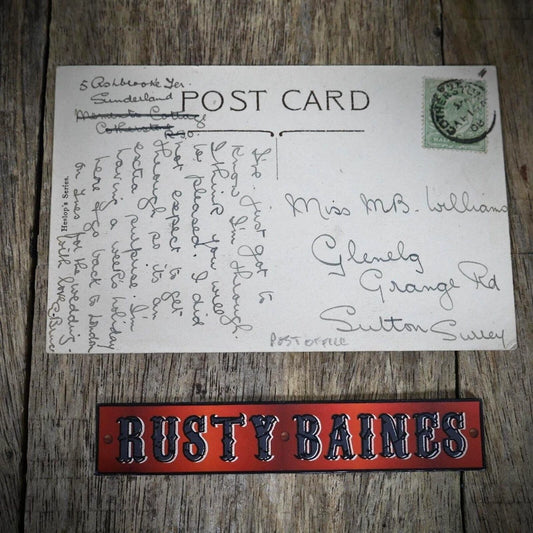 5 Ashbrooke Ter.
Sunderland
Memento Cottage
Cotherstone
POST CARD
Heslop's Series.
I've just got to
know I'm through.
I think you will
be pleased. I did
not expect to get
through so its an
extra surprise. I'm
having a week's holiday
here & go back to London
on Tues for the wedding.
with love
Miss M.B. Williams
Glenelg
Grange Rd
Sutton Surrey
POST OFFICE
RUSTY BAINES